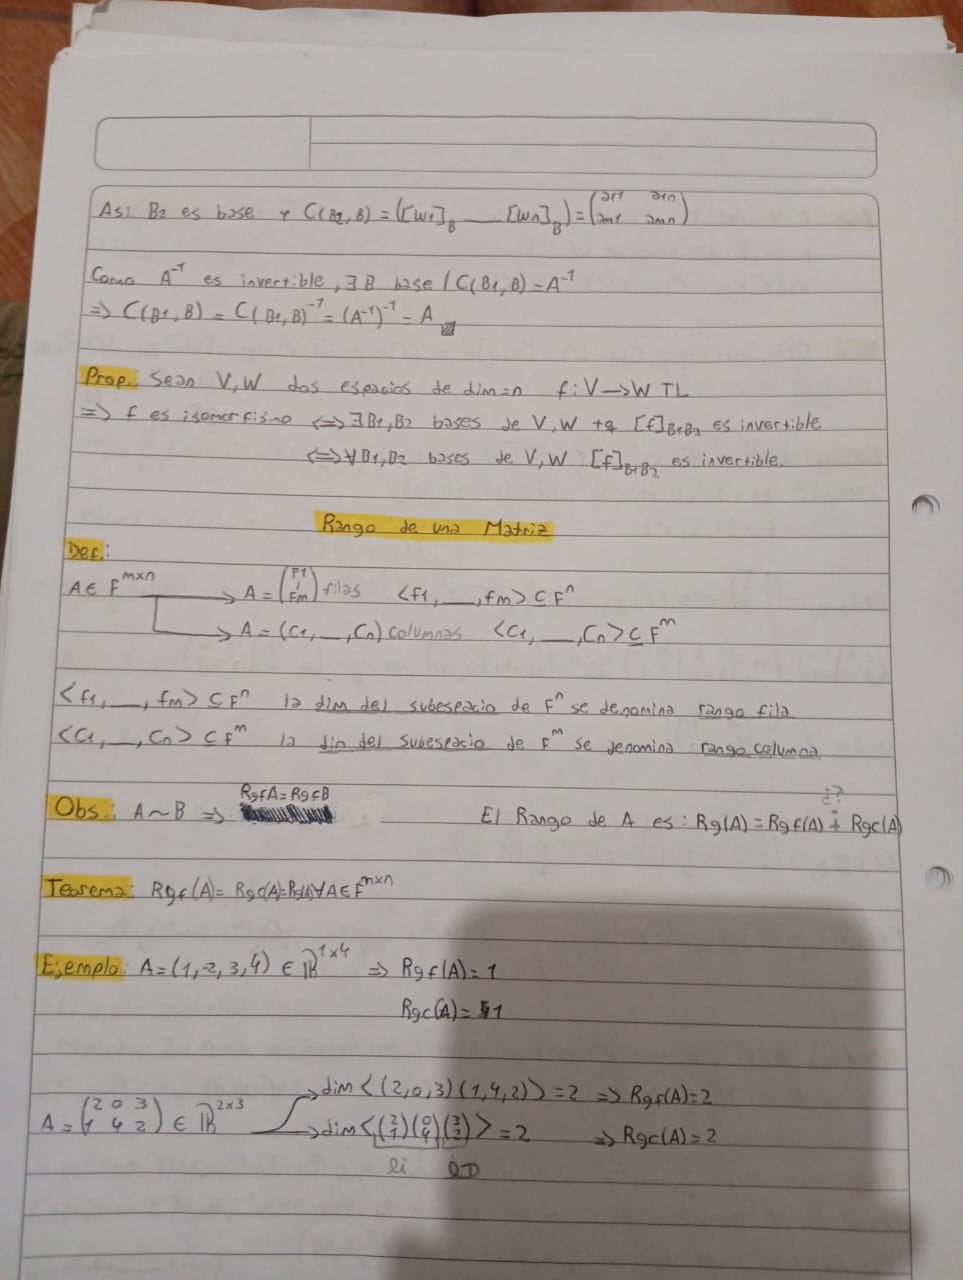 Asi B2 es base y C(B2,B) = ([w1]B ___ [wn]B) = (a11 a1n
am1 amn)
Como A⁻¹ es invertible, ∃ B base / C(B1,B) = A⁻¹
=> C(B1,B) = C(B1,B)⁻¹ = (A⁻¹)⁻¹ = A
Prop. Sean V,W dos espacios de dim=n f: V→W TL
=> f es isomorfismo <=> ∃B1,B2 bases de V,W tq [f]B1B2 es invertible
<=> ∀B1,B2 bases de V,W [f]B1B2 es invertible.
Rango de una Matriz
Def.:
A ∈ F^mxn → A = (F1 ⁞ Fm) filas <f1, __, fm> ⊆ Fⁿ
→ A = (C1, __, Cn) columnas <C1, __, Cn> ⊆ F^m
<f1, __, fm> ⊆ Fⁿ la dim del subespacio de Fⁿ se denomina rango fila
<C1, __, Cn> ⊆ F^m la dim del subespacio de F^m se denomina rango columna
Obs: A ~ B => RgfA = RgfB
¿?
El Rango de A es: Rg(A) = Rgf(A) + Rgc(A)
Teorema: Rgf(A) = Rgc(A) = Rg(A) ∀A ∈ F^mxn
Ejemplo: A = (1,-2,3,4) ∈ ℝ^1x4 => Rgf(A) = 1
Rgc(A) = 1
A = (2 0 3
1 4 2) ∈ ℝ^2x3 → dim<(2,0,3)(1,4,2)> = 2 => Rgf(A) = 2
→ dim<(2 1)(0 4)(3 2)> = 2 => Rgc(A) = 2
li LD